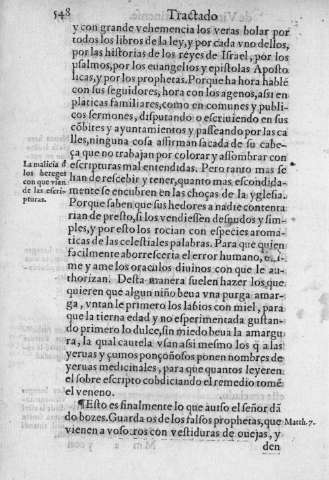 548
Tractado
y con grande vehemencia los veras bolar por
todos los libros de la ley, y por cada vno dellos,
por las historias de los reyes de Israel, por los
psalmos, por los euangelios y epistolas Aposto
licas, y por los prophetas. Porque ha hora hablē
con sus seguidores, hora con los agenos, assi en
platicas familiares, como en comunes y publi-
cos sermones, disputando o escriuiendo en sus
cōbites y ayuntamientos y passeando por las ca
lles, ninguna cosa affirman sacada de su cabe-
ça que no trabajan por colorar y assombrar con
escripturas mal entendidas. Pero tanto mas se
han de rescebir y tener, quanto mas escondida-
mente se encubren en las choças de la yglesia.
La malicia đ
los hereges
con que vsan
de las escri-
pturas.
Porque saben que sus hedores a nadie contenta
rian de presto, si los vendiessen desnudos y sim-
ples, y por esto los rocian con especies aroma-
ticas de las celestiales palabras. Para que quien
facilmente aborresceria el error humano, esti-
me y ame los oraculos diuinos con que le au-
thorizan. Desta manera suelen hazer los que
quieren que algun niño beua vna purga amar-
ga, vntan le primero los labios con miel, para
que la tierna edad y no esperimentada gustan-
do primero lo dulce, sin miedo beua la amargu
ra, la qual cautela vsan assi mesmo los q̄ a las
yeruas y çumos ponçoñosos ponen nombres de
yeruas medicinales, para que quantos leyeren
el sobre escripto cobdiciando el remedio tomē
el veneno.
¶Esto es finalmente lo que auiso el señor dā
do bozes. Guarda os de los falsos prophetas, que
Matth. 7.
vienen a vosotros con vestiduras de ouejas, y
den